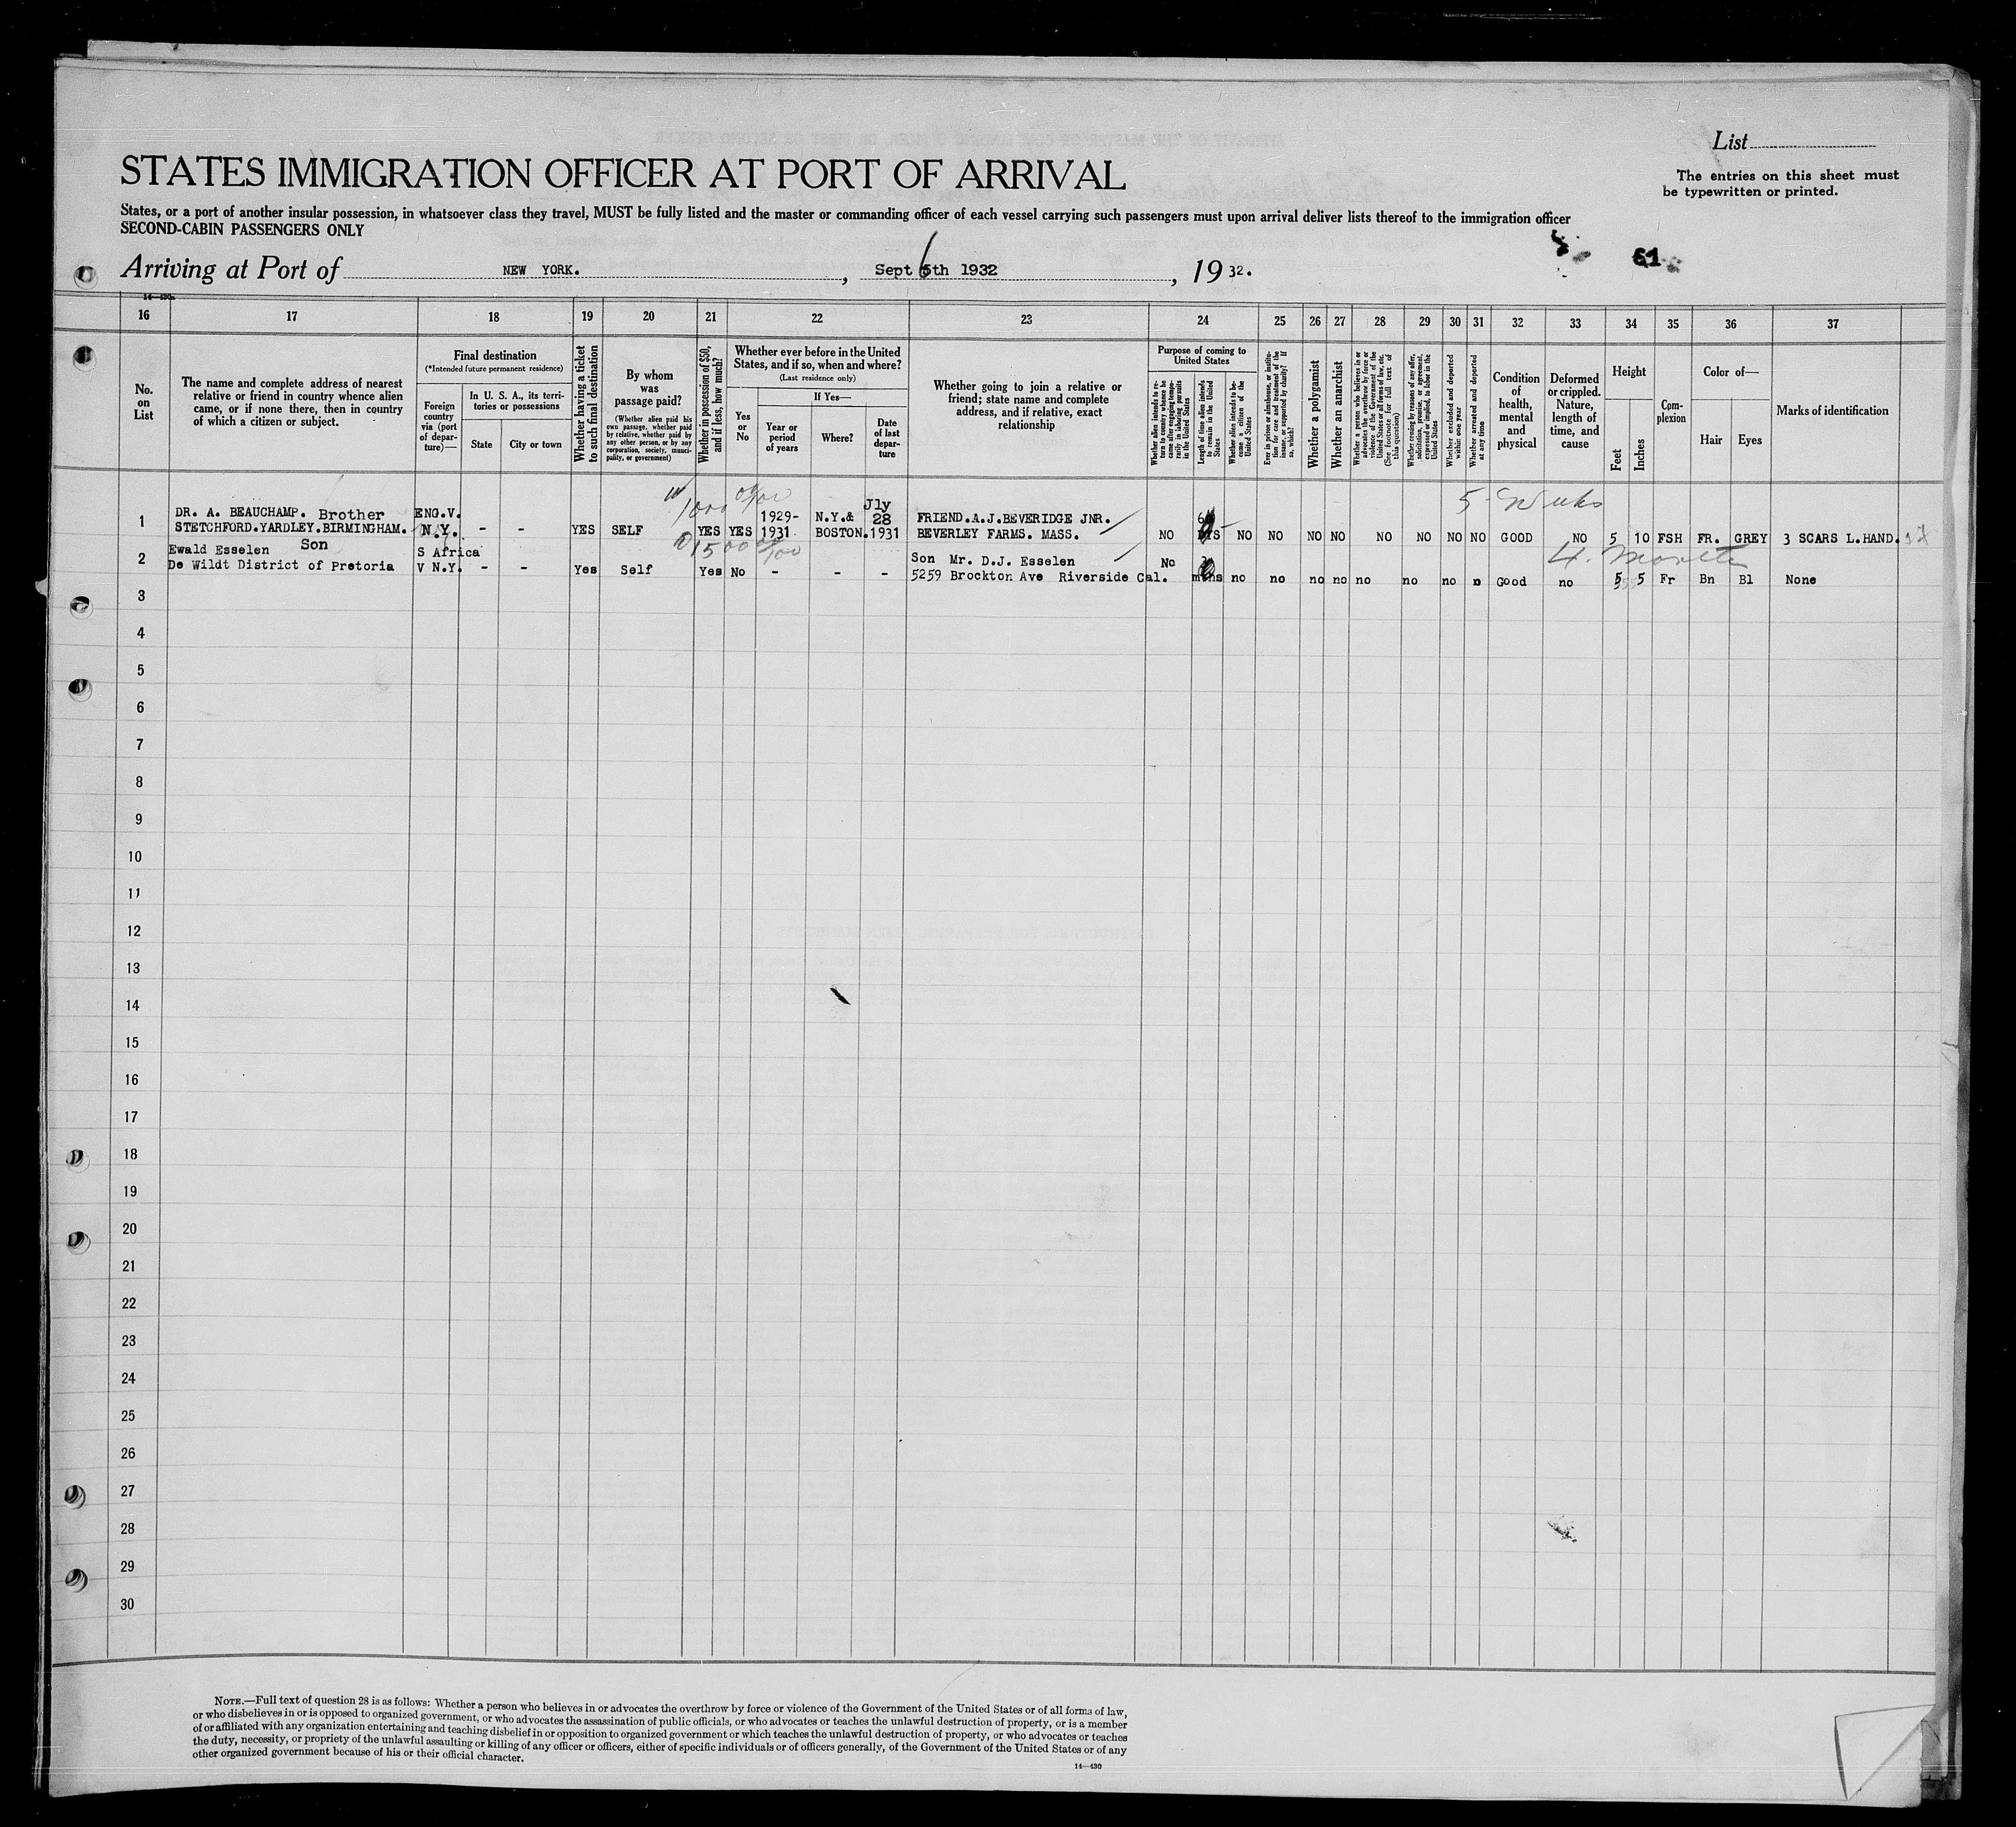 List
STATES IMMIGRATION OFFICER AT PORT OF ARRIVAL
The entries on this sheet must
be typewritten or printed.
States, or a port of another insular possession, in whatsoever class they travel, MUST be fully listed and the master or commanding officer of each vessel carrying such passengers must upon arrival deliver lists thereof to the immigration officer
SECOND-CABIN PASSENGERS ONLY
61
Arriving at Port of NEW YORK. , Sept 6th 1932 , 19 32.
14—430
16 17 18 19 20 21 22 23 24 25 26 27 28 29 30 31 32 33 34 35 36 37
No.
on
List
The name and complete address of nearest
relative or friend in country whence alien
came, or if none there, then in country
of which a citizen or subject.
Final destination
(*Intended future permanent residence)
Foreign
country
via (port
of depar-
ture)—
In U. S. A., its terri-
tories or possessions
State
City or town
Whether having a ticket
to such final destination
By whom
was
passage paid?
(Whether alien paid his
own passage, whether paid
by relative, whether paid by
any other person, or by any
corporation, society, munci-
pality, or government)
Whether in possession of $50,
and if less, how much?
Whether ever before in the United
States, and if so, when and where?
(Last residence only)
Yes
or
No
If Yes—
Year or
period
of years
Where?
Date
of last
depar-
ture
Whether going to join a relative or
friend; state name and complete
address, and if relative, exact
relationship
Purpose of coming to
United States
Whether alien intends to re-
turn to country whence he
came after engaging tempo-
rarily in laboring pursuits
in the United States
Length of time alien intends
to remain in the United
States
Whether alien intends to be-
come a citizen of the
United States
Ever in prison or almshouse, or institu-
tion for care and treatment of the
insane, or supported by charity? If
so, which?
Whether a polygamist
Whether an anarchist
Whether a person who believes in or
advocates the overthrow by force or
violence of the Government of the
United States or all forms of law, etc.
(See footnote for full text of
this question)
Whether coming by reasons of any offer,
solicitation, promise, or agreement,
expressed or implied, to labor in the
United States
Whether excluded and deported
within one year
Whether arrested and deported
at any time
Condition
of
health,
mental
and
physical
Deformed
or crippled.
Nature,
length of
time, and
cause
Height
Feet
Inches
Com-
plexion
Color of—
Hair
Eyes
Marks of identification
5 Weeks
1000
DR. A. BEAUCHAMP. Brother ENG.V. 1929- N.Y.& Jly 28 FRIEND.A.J.BEVERIDGE JNR.
1 STETCHFORD.YARDLEY.BIRMINGHAM. N.Y. - - YES SELF YES YES 1931 BOSTON. 1931 BEVERLEY FARMS. MASS. NO NO NO NO NO NO NO NO NO GOOD NO 5 10 FSH FR. GREY 3 SCARS L.HAND.
1500 4. Months
Ewald Esselen Son S Africa Son Mr. D.J. Esselen No
2 De Wildt District of Pretoria V N.Y. - - Yes Self Yes No - - - 5259 Brockton Ave Riverside Cal. mths no no no no no no no n Good no 5 5 Fr Bn Bl None
3
4
5
6
7
8
9
10
11
12
13
14
15
16
17
18
19
20
21
22
23
24
25
26
27
28
29
30
NOTE.—Full text of question 28 is as follows: Whether a person who believes in or advocates the overthrow by force or violence of the Government of the United States or of all forms of law,
or who disbelieves in or is opposed to organized government, or who advocates the assassination of public officials, or who advocates or teaches the unlawful destruction of property, or is a member
of or affiliated with any organization entertaining and teaching disbelief in or opposition to organized government or which teaches the unlawful destruction of property, or who advocates or teaches
the duty, necessity, or propriety of the unlawful assaulting or killing of any officer or officers, either of specific individuals or of officers generally, of the Government of the United States or of any
other organized government because of his or their official character.
14—430